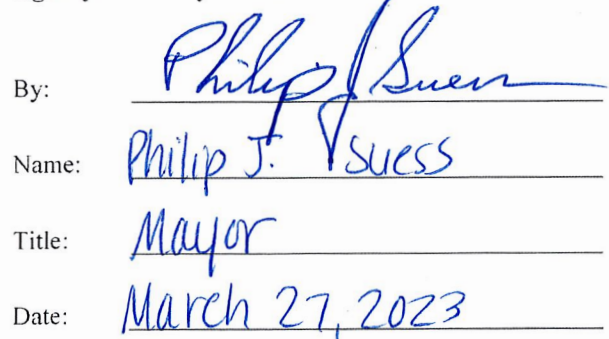 By: Philip J Suess
Name: Philip J. Suess
Title: Mayor
Date: March 27, 2023